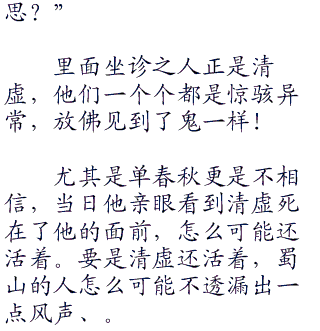 思？”
里面坐诊之人正是清
虚，他们一个个都是惊骇异
常，放佛见到了鬼一样！
尤其是单春秋更是不相
信，当日他亲眼看到清虚死
在了他的面前，怎么可能还
活着。要是清虚还活着，蜀
山的人怎么可能不透漏出一
点风声、。